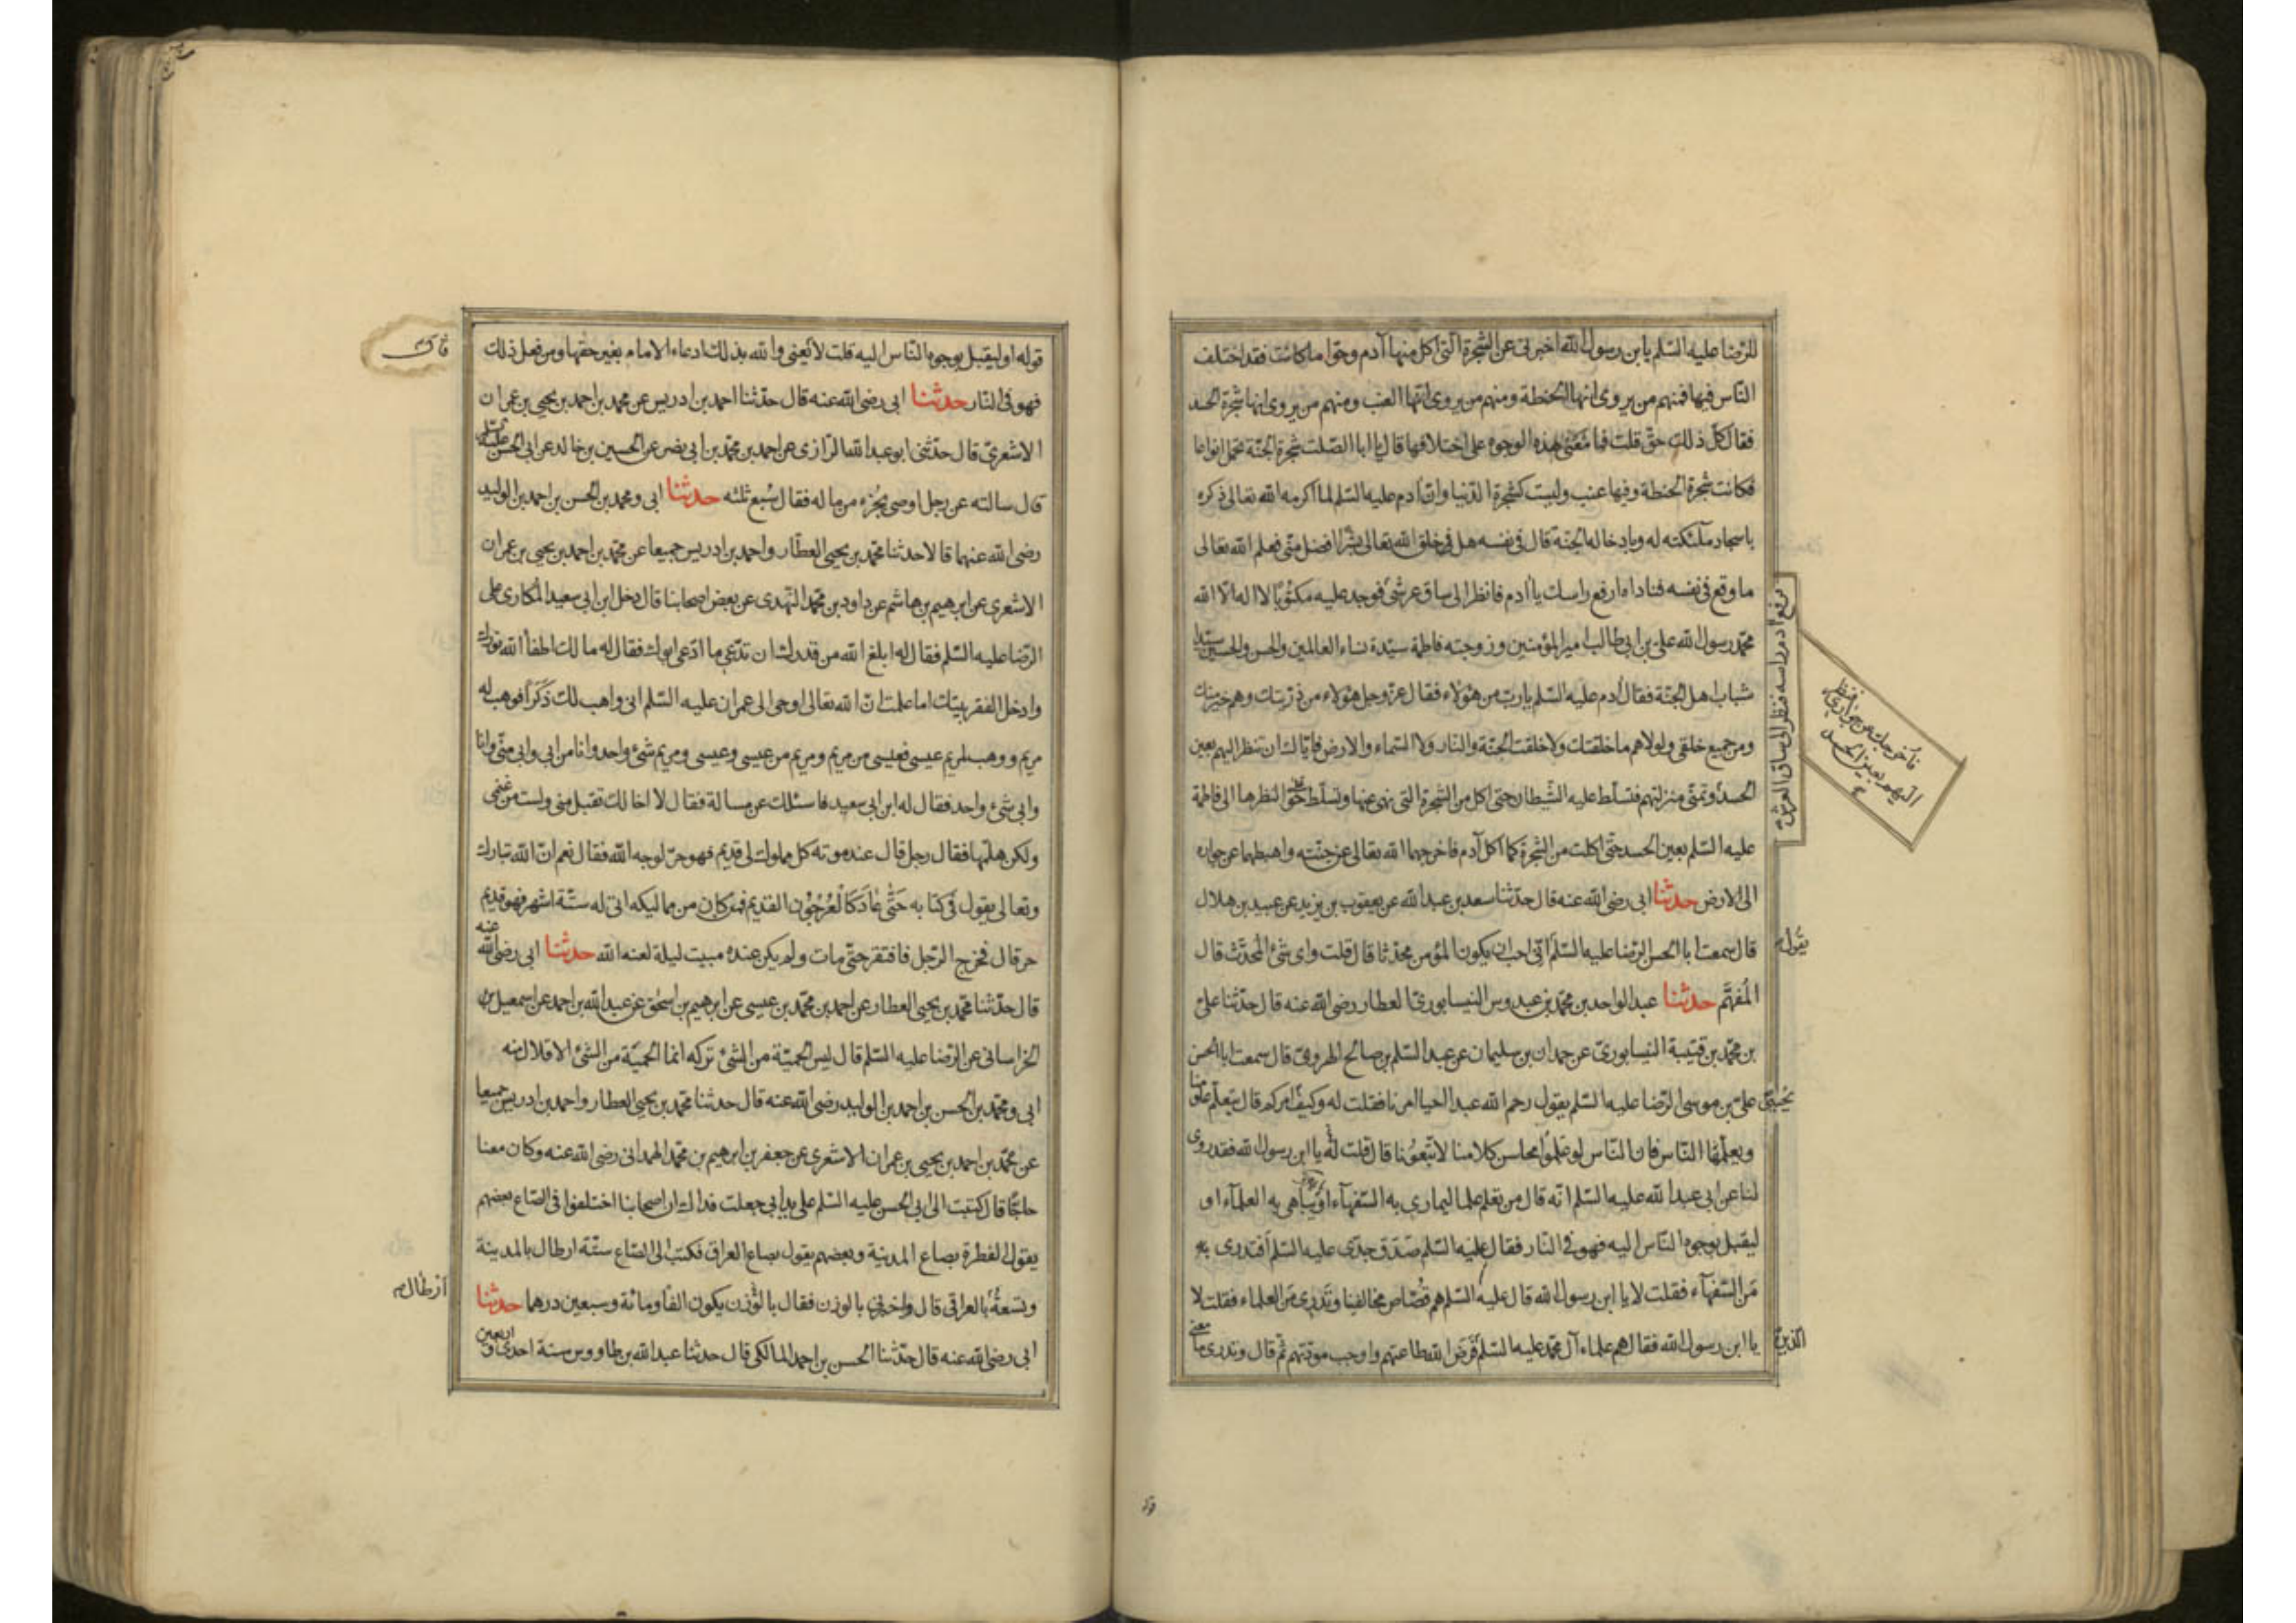 للرضا عليه السلم يا بن رسول الله اخبرنى عن الشجرة التى اكل منها آدم وحوا ما كانت فقد اختلف
الناس فيها فمنهم من يروى انها الحنطة ومنهم من يروى انها العنب ومنهم من يروى انها شجرة الحسد
فقال كل ذلك حق قلت فما معنى هذه الوجوه على اختلافها قال يا ابا الصلت شجرة الجنة تحمل انواعا
فكانت شجرة الحنطة وفيها عنب وليست كشجرة الدنيا وان آدم عليه السلم لما اكرمه الله تعالى ذكره
باسجاد ملئكته له وبادخاله الجنة قال فى نفسه هل فى خلق الله تعالى بشرا افضل منى فعلم الله تعالى
ما وقع فى نفسه فناداه ارفع راسك يا آدم فانظر الى ساق عرشى فوجد عليه مكتوبا لا اله الا الله
محمد رسول الله على بن ابى طالب امير المؤمنين وزوجته فاطمة سيدة نساء العالمين والحسن والحسين سيدا
شباب اهل الجنة فقال آدم عليه السلم يا رب من هؤلاء فقال عز وجل هؤلاء من ذريتك وهم خير منك
ومن جميع خلقى ولولاهم ما خلقتك ولا خلقت الجنة والنار ولا السماء والارض فاياك ان تنظر اليهم بعين
الحسد وتمنى منزلتهم فتسلط عليه الشيطان حتى اكل من الشجرة التى نهى عنها وتسلط على حوا لنظرها الى فاطمة
عليه السلم بعين الحسد حتى اكلت من الشجرة كما اكل آدم فاخرجهما الله تعالى عن جنته واهبطهما عن جواره
الى الارض حدثنا ابى رضى الله عنه قال حدثنا سعد بن عبد الله عن يعقوب بن يزيد عن عبيد بن هلال
قال سمعت ابا الحسن الرضا عليه السلم انى احب ان يكون المؤمن محدثا قال قلت واى شئ المحدث قال
المفهم حدثنا عبد الواحد بن محمد بن عبدوس النيسابورى العطار رضى الله عنه قال حدثنا على
بن محمد بن قتيبة النيسابورى عن حمدان بن سليمان عن عبد السلم بن صالح الهروى قال سمعت ابا الحسن
على بن موسى الرضا عليه السلم يقول رحم الله عبدا احيا امرنا فقلت له وكيف امركم قال يتعلم علومنا
ويعلمها الناس فان الناس لو علموا محاسن كلامنا لاتبعونا قال قلت له يا ابن رسول الله فقد روى
لنا عن ابى عبد الله عليه السلم انه قال من تعلم علما ليمارى به السفهآء او يباهى به العلمآء او
ليقبل بوجوه الناس اليه فهو فى النار فقال عليه السلم صدق جدى عليه السلم افتدرى
من السفهآء فقلت لا يا ابن رسول الله قال عليه السلم هم قصاص مخالفينا وتدرى من العلماء فقلت لا
يا ابن رسول الله فقال هم علماء آل محمد عليه السلم فرض الله طاعتهم واوجب مودتهم ثم قال وتدرى ما معنى
فرفع آدم راسه فنظر الى ساق العرش
فاخرجك عن جوارى فنظر
اليهم بعين الحسد
يقول
الذين
قوله او ليقبل بوجوه الناس اليه قلت لا يعنى والله بذلك ادعاء الامام بغير حقها ومن فعل ذلك
فهو فى النار حدثنا ابى رضى الله عنه قال حدثنا احمد بن ادريس عن محمد بن احمد بن يحيى بن عمران
الاشعرى قال حدثنى ابو عبد الله الرازى عن احمد بن محمد بن ابى نصر عن الحسين بن خالد عن ابى الحسن عليه السلم
قال سالته عن رجل اوصى بجزء من ماله فقال سبع ثلثه حدثنا ابى ومحمد بن الحسن بن احمد بن الوليد
رضى الله عنهما قالا حدثنا محمد بن يحيى العطار واحمد بن ادريس جميعا عن محمد بن احمد بن يحيى بن عمران
الاشعرى عن ابرهيم بن هاشم عن داود بن محمد النهدى عن بعض اصحابنا قال دخل ابن ابى سعيد المكارى على
الرضا عليه السلم فقال له ابلغ الله من قدرك ان تدعى ما ادعى ابوك فقال له ما لك اطفأ الله نورك
وادخل الفقر بيتك اما علمت ان الله تعالى اوحى الى عمران عليه السلم انى واهب لك ذكرا فوهب له
مريم ووهب لمريم عيسى فعيسى من مريم ومريم من عيسى وعيسى ومريم شئ واحد وانا من ابى وابى منى وانا
وابى شئ واحد فقال له ابن ابى سعيد فاسئلك عن مسالة فقال لا اخالك تقبل منى ولست من غنمى
ولكن هلمها فقال رجل قال عند موته كل مملوك لى قديم فهو حر لوجه الله فقال نعم ان الله تبارك
وتعالى يقول فى كتابه حتى عاد كالعرجون القديم فمن كان من مماليكه اتى له ستة اشهر فهو قديم
حر قال فخرج الرجل فافتقر حتى مات ولم يكن عنده مبيت ليلة لعنه الله حدثنا ابى رضى الله عنه
قال حدثنا محمد بن يحيى العطار عن احمد بن محمد بن عيسى عن ابرهيم بن اسحق عن عبد الله بن احمد عن اسمعيل بن
الخراسانى عن الرضا عليه السلم قال ليس الحمية من الشئ تركه انما الحمية من الشئ الاقلال منه
ابى ومحمد بن الحسن بن احمد بن الوليد رضى الله عنه قال حدثنا محمد بن يحيى العطار واحمد بن ادريس جميعا
عن محمد بن احمد بن يحيى بن عمران الاشعرى عن جعفر بن ابرهيم بن محمد الهمدانى رضى الله عنه وكان معنا
حاجا قال كتبت الى ابى الحسن عليه السلم على يد ابى جعلت فداك ان اصحابنا اختلفوا فى الصاع بعضهم
يقول الفطرة بصاع المدينة وبعضهم يقول بصاع العراق فكتب الى الصاع ستة ارطال بالمدينة
وتسعة بالعراقى قال واخبرنى بالوزن فقال بالوزن يكون الفا ومائة وسبعين درهما حدثنا
ابى رضى الله عنه قال حدثنا الحسن بن احمد المالكى قال حدثنا عبد الله بن طاووس سنة احدى واربعين
ارطال